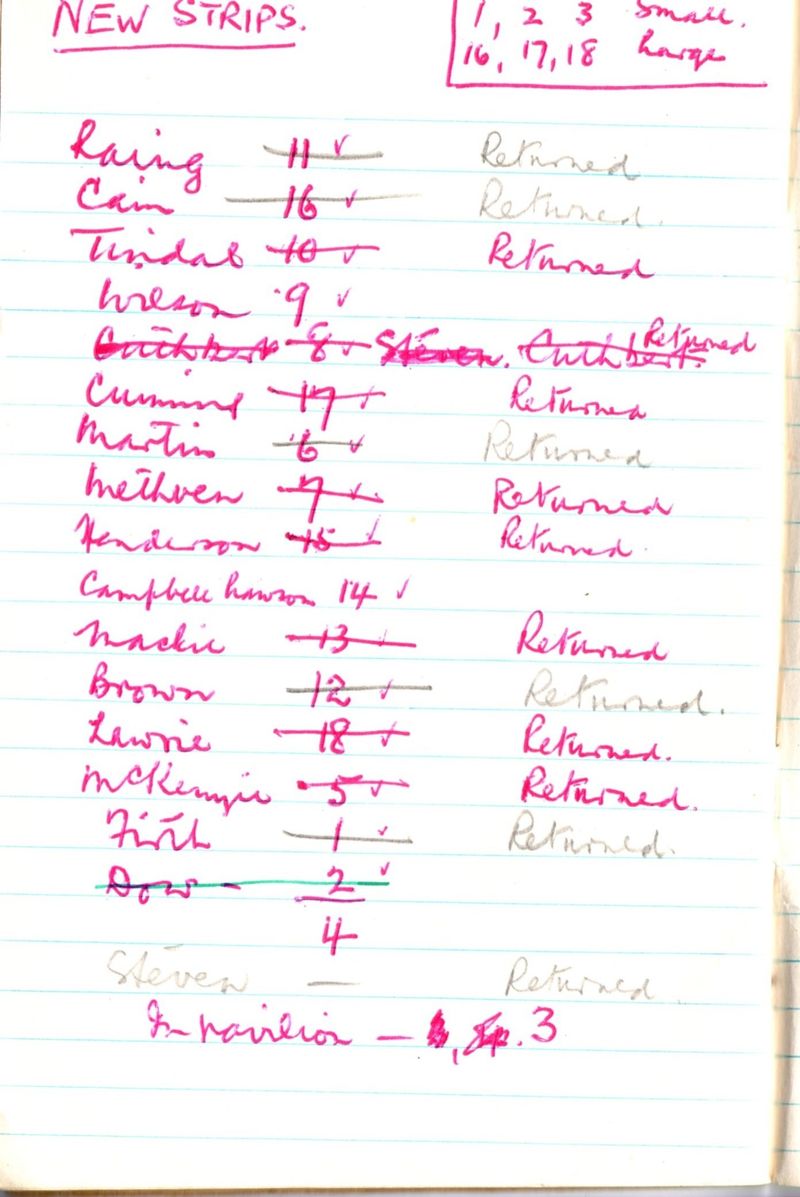 NEW STRIPS.
1, 2 3 Small.
16, 17, 18 Large
Raing 11 ✓ Returned
Cain 16 ✓ Returned.
Tindal 10 ✓ Returned
Wilson 9 ✓
Cuthbert 8 ✓ Steven. Cuthbert. Returned
Cumming 17 ✓ Returned
Martin 6 ✓ Returned
Methven 7 ✓ Returned
Henderson 15 ✓ Returned.
Campbell Lawson 14 ✓
Mackie 13 ✓ Returned
Brown 12 ✓ Returned.
Lawrie 18 ✓ Returned.
McKenzie 5 ✓ Returned.
Firth 1 ✓ Returned.
Dow - 2 ✓
4
Steven — Returned.
In pavilion — 3